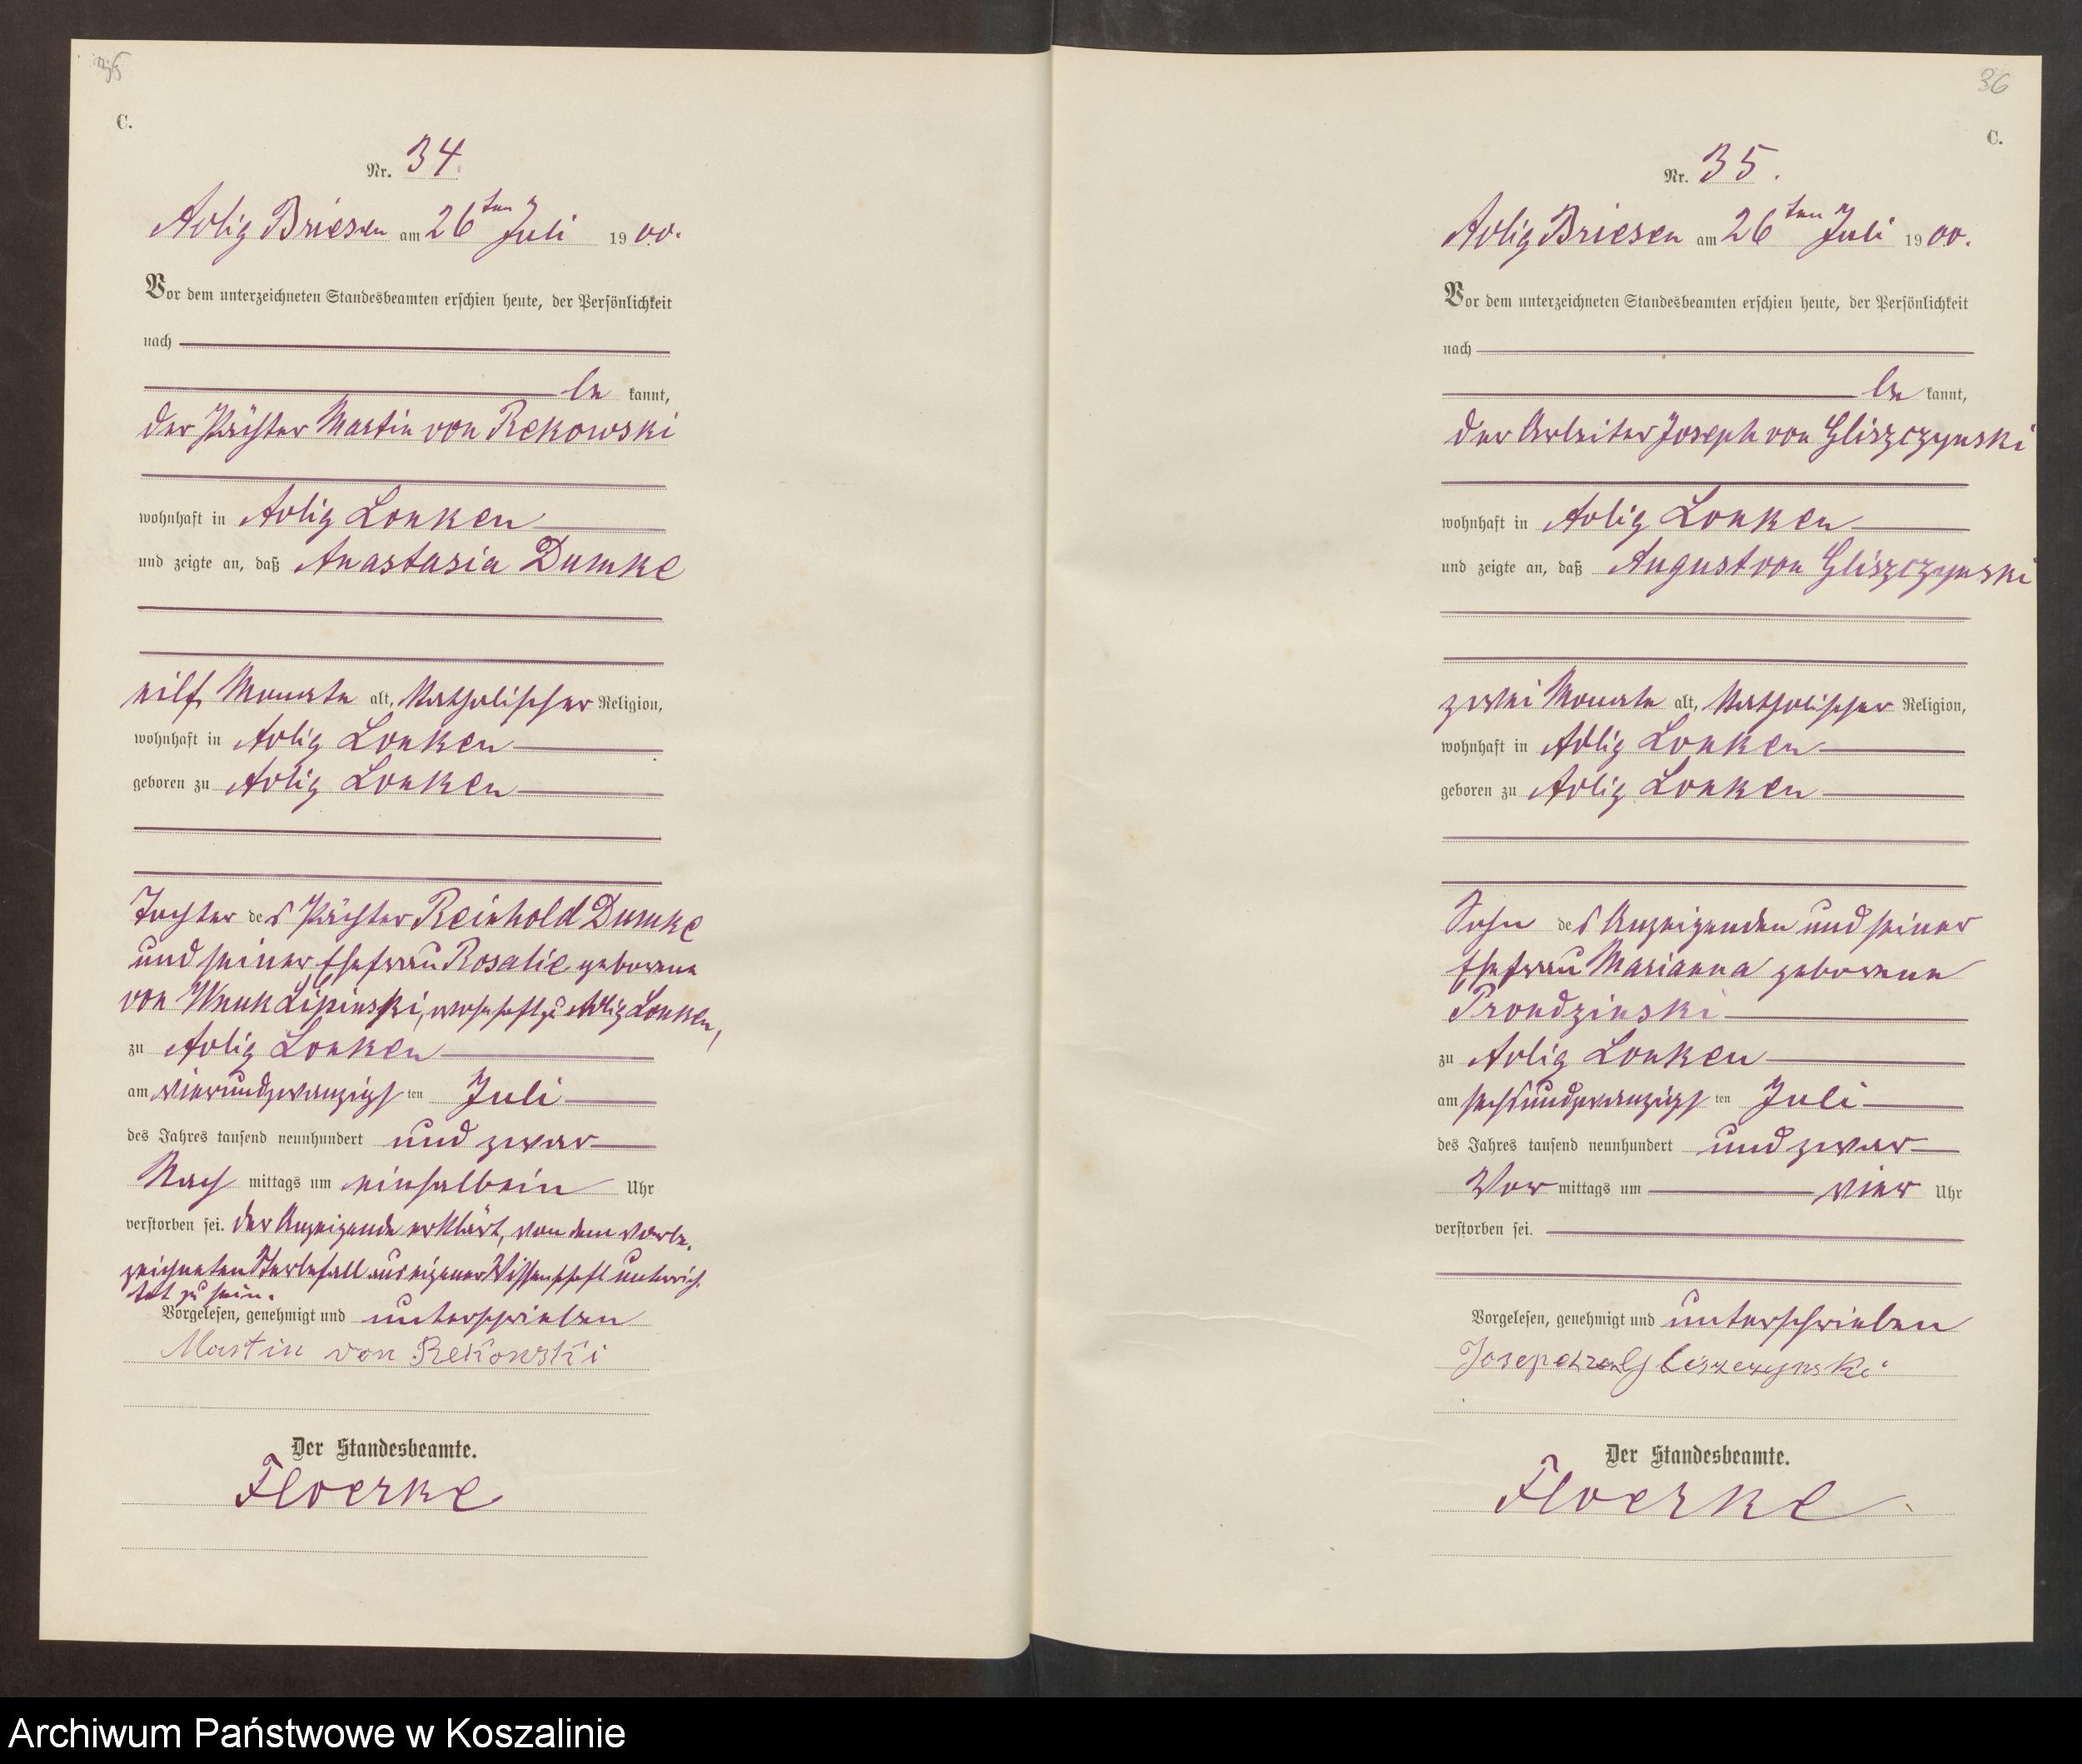 C.
Nr. 34.
Adlig Briesen am 26ten Juli 1900.
Vor dem unterzeichneten Standesbeamten erschien heute, der Persönlichkeit
nach
be kannt,
der Pächter Martin von Rekowski
wohnhaft in Adlig Lonken
und zeigte an, daß Anastasia Dumke
eilf Monate alt, katholischer Religion,
wohnhaft in Adlig Lonken
geboren zu Adlig Lonken
Tochter des Pächter Reinhold Dumke
und seiner Ehefrau Rosalie geborene
von Wnuk Lipinski, wohnhaft zu Adlig Lonken,
zu Adlig Lonken
am vierundzwanzigsten Juli
des Jahres tausend neunhundert und zwar
Nach mittags um einhalbein Uhr
verstorben sei. Der Anzeigende erklärt, von dem vorbe-
zeichneten Sterbefall aus eigener Wissenschaft unterrich-
tet zu sein.
Vorgelesen, genehmigt und unterschrieben
Martin von Rekowski
Der Standesbeamte.
Floerke
36
C.
Nr. 35.
Adlig Briesen am 26ten Juli 1900.
Vor dem unterzeichneten Standesbeamten erschien heute, der Persönlichkeit
nach
be kannt,
der Arbeiter Joseph von Gliszczynski
wohnhaft in Adlig Lonken
und zeigte an, daß August von Gliszczynski
zwei Monate alt, katholischer Religion,
wohnhaft in Adlig Lonken
geboren zu Adlig Lonken
Sohn des Anzeigenden und seiner
Ehefrau Marianna geborene
Prondzinski
zu Adlig Lonken
am sechsundzwanzigsten Juli
des Jahres tausend neunhundert und zwar
Vor mittags um vier Uhr
verstorben sei.
Vorgelesen, genehmigt und unterschrieben
Joseph von Gliszczynski
Der Standesbeamte.
Floerke
Archiwum Państwowe w Koszalinie